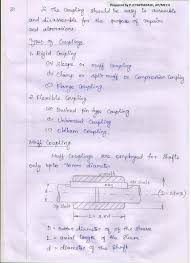 Prepared by
The coupling should be easy to assemble
and disassemble for the purpose of repairs
and alterations.
Types of Couplings
1. Rigid Coupling
(i) Sleeve or Muff coupling
(ii) Clamp or split muff or Compression Coupling
(iii) Flange Coupling
2. Flexible Coupling
(i) Bushed pin type Coupling
(ii) Universal Coupling
(iii) Oldham Coupling.
Muff Coupling
Muff Couplings are employed for shafts
only upto 70mm diameter
key
L = 3.5d
D = outer diameter of the sleeve
L = axial length of the sleeve
d = diameter of the shaft